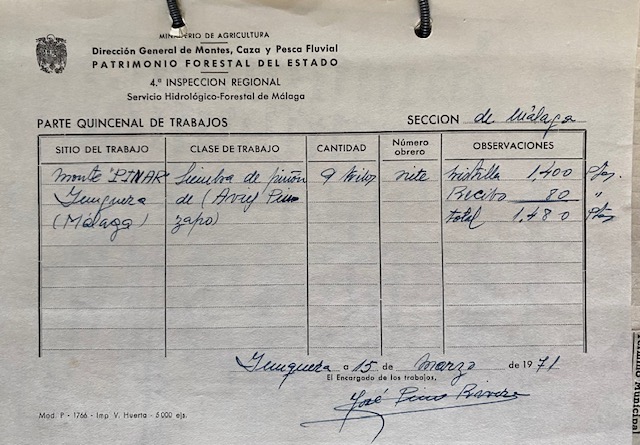 MINISTERIO DE AGRICULTURA
Dirección General de Montes, Caza y Pesca Fluvial
PATRIMONIO FORESTAL DEL ESTADO
4.ª INSPECCION REGIONAL
Servicio Hidrológico-Forestal de Málaga
PARTE QUINCENAL DE TRABAJOS SECCION de Málaga
SITIO DEL TRABAJO CLASE DE TRABAJO CANTIDAD Número obrero OBSERVACIONES
Monte "PINAR" Siembra de piñón 9 kilos 1,400 Ptas.
Yunquera de (Pino Recibo 80 "
(Málaga) zapo) total 1,480 Ptas
Yunquera a 15 de Marzo de 1971
El Encargado de los trabajos,
José Pino Rivera
Mod. P - 1766 - Imp V. Huerta - 5000 ejs.
Municipal